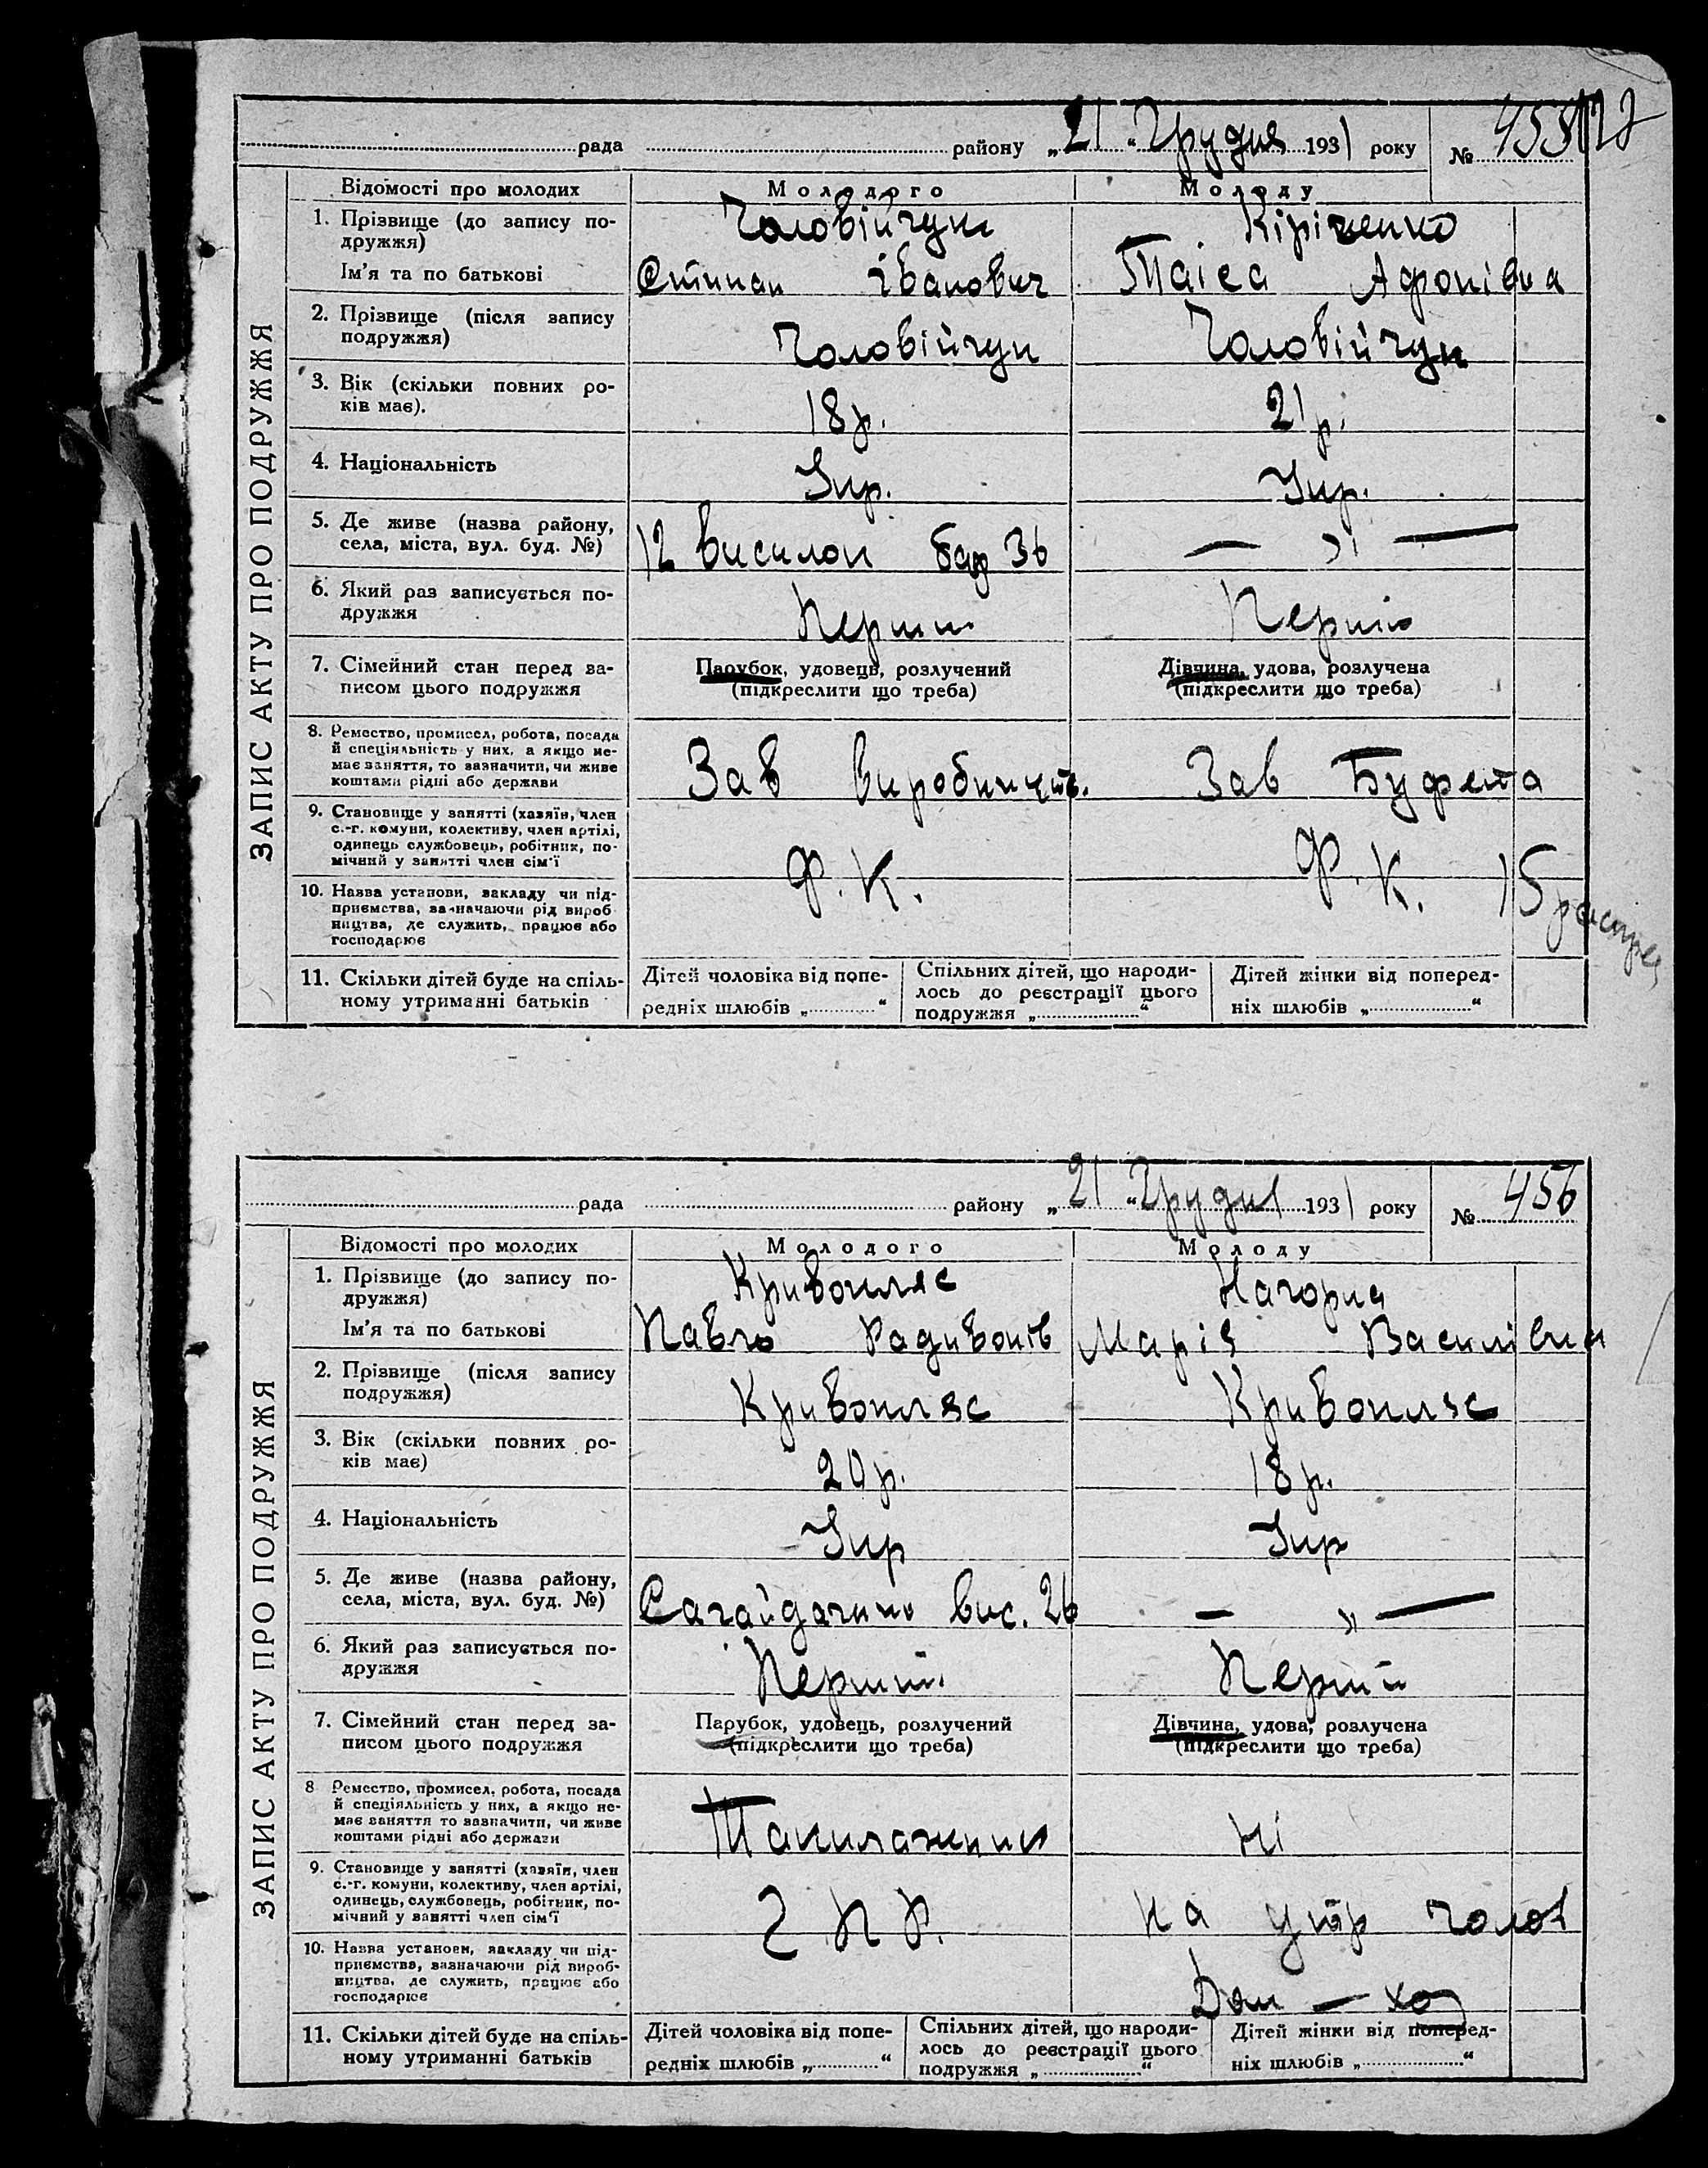 рада району „21“ Грудня 1931 року № 455
ЗАПИС АКТУ ПРО ПОДРУЖЖЯ
Відомості про молодих Молодого Молоду
1. Прізвище (до запису по-
дружжя) Чоловійчук Кіріченко
Ім'я та по батькові Степан Іванович Таіса Афонівна
2. Прізвище (після запису
подружжя) Чоловійчук Чоловійчук
3. Вік (скільки повних ро-
ків має). 18 р. 21 р.
4. Національність Укр. Укр.
5. Де живе (назва району,
села, міста, вул. буд. №) 12 висилок 36 — „ —
6. Який раз записується по-
дружжя Перший Перший
7. Сімейний стан перед за-
писом цього подружжя
Парубок, удовець, розлучений
(підкреслити що треба)
Дівчина, удова, розлучена
(підкреслити що треба)
8. Ремество, промисел, робота, посада
й спеціяльність у них, а якщо не-
має заняття, то зазначити, чи живе
коштами рідні або держави
Зав виробництв. Зав Буфета
9. Становище у занятті (хазяїн, член
с.-г. комуни, колективу, член артілі,
одинець службовець, робітник, по-
мічний у занятті член сім'ї
Ф. К. Ф. К. 15
10. Назва установи, закладу чи під-
приємства, зазначаючи рід вироб
ництва, де служить, працює або
господарює
11. Скільки дітей буде на спіль-
ному утриманні батьків
Дітей чоловіка від попе-
редніх шлюбів „ “
Спільних дітей, що народи-
лось до реєстрації цього
подружжя „ “
Дітей жінки від поперед-
ніх шлюбів „ “
рада району „21“ Грудня 1931 року № 456
ЗАПИС АКТУ ПРО ПОДРУЖЖЯ
Відомості про молодих Молодого Молоду
1. Прізвище (до запису по-
дружжя) Кривопляс Нагорна
Ім'я та по батькові Павло Радивонів Марія Василівна
2. Прізвище (після запису
подружжя) Кривопляс Кривопляс
3. Вік (скільки повних ро-
ків має) 20 р. 18 р.
4. Національність Укр Укр
5. Де живе (назва району,
села, міста, вул. буд. №) Сагайдачно вис. 26 — „ —
6. Який раз записується по-
дружжя Перший Перший
7. Сімейний стан перед за-
писом цього подружжя
Парубок, удовець, розлучений
(підкреслити що треба)
Дівчина, удова, розлучена
(підкреслити що треба)
8 Ремество, промисел, робота, посада
й спеціяльність у них, а якщо не-
має заняття то зазначити, чи живе
коштами рідні або держави
Такилажник Ні
9. Становище у занятті (хазяїн, член
с.-г. комуни, колективу, член артілі,
одинець, службовець, робітник, по-
мічний у занятті член сім'ї
На утр чолов
10. Назва установи, закладу чи під-
приємства, зазначаючи рід вироб-
ництва, де служить, працює або
господарює
Дом — хоз
11. Скільки дітей буде на спіль-
ному утриманні батьків
Дітей чоловіка від попе-
редніх шлюбів „ “
Спільних дітей, що народи-
лось до реєстрації цього
подружжя „ “
Дітей жінки від поперед-
ніх шлюбів „ “